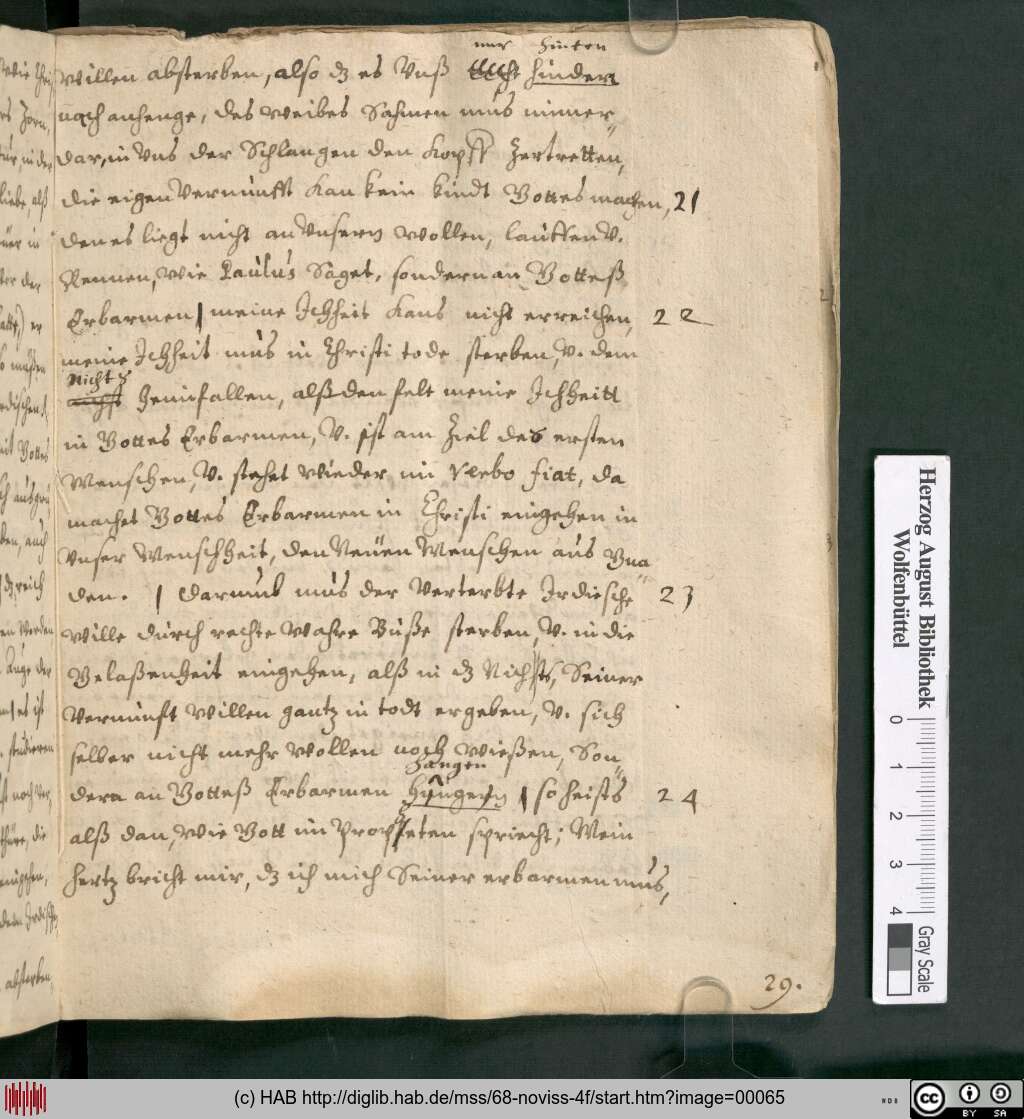 nur hinten
willen absterben, also dz es Unß hinder
nach anhenge, des weibes Sahmen mus immer=
dar, in Uns der Schlangen den Kopff Zertretten,
die eigen Vernunfft kan kein kindt Gottes machen, 21
den es liegt nicht an Unserm wollen, lauffen v.
Rennen, wie Paulus Saget, sondern an Gotteß
Erbarmen | meine Ichheit kans nicht erreichen, 22
meine Ichheit mus in Christi tode sterben, v. dem
Nichtz
heimfallen, alßden felt meine Ichheitt
in Gottes Erbarmen, v. ist am Ziel des ersten
Menschen, v. stehet wieder im Verbo fiat, da
machet Gottes Erbarmen in Christi eingehen in
Unser Menschheit, den Neuen Menschen aus Gna=
den. | Darumb mus der Verterbte Irdische 23
wille durch rechte wahre Buße sterben, v. in die
Gelaßenheit eingehen, alß in dz Nichts, Seiner
Vernunfft willen gantz in todt ergeben, v. sich
selber nicht mehr wollen noch wießen, Son=
hangen
dern an Gotteß Erbarmen | so heists 24
alß dan, wie Gott im Propheten spriecht; Mein
hertz bricht mir, dz ich mich Seiner erbarmen mus,
29.
Herzog August Bibliothek
Wolfenbüttel
0 1 2 3 4
Gray Scale
(c) HAB http://diglib.hab.de/mss/68-noviss-4f/start.htm?image=00065
cc BY SA